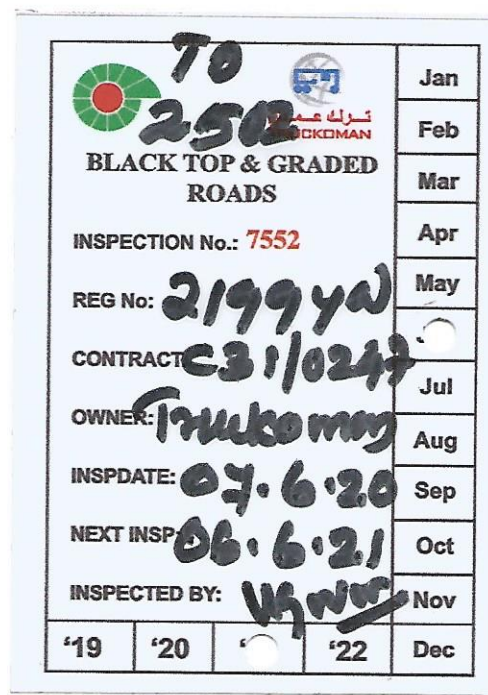 TO
2502
ترك عمان
TRUCKOMAN
BLACK TOP & GRADED
ROADS
INSPECTION No.: 7552
REG No: 2199 YW
CONTRACT C31/0247
OWNER: Truckoman
INSPDATE: 07.6.20
NEXT INSP: 06.6.21
INSPECTED BY:
Jan
Feb
Mar
Apr
May
Jul
Aug
Sep
Oct
Nov
Dec
‘19
‘20
‘22